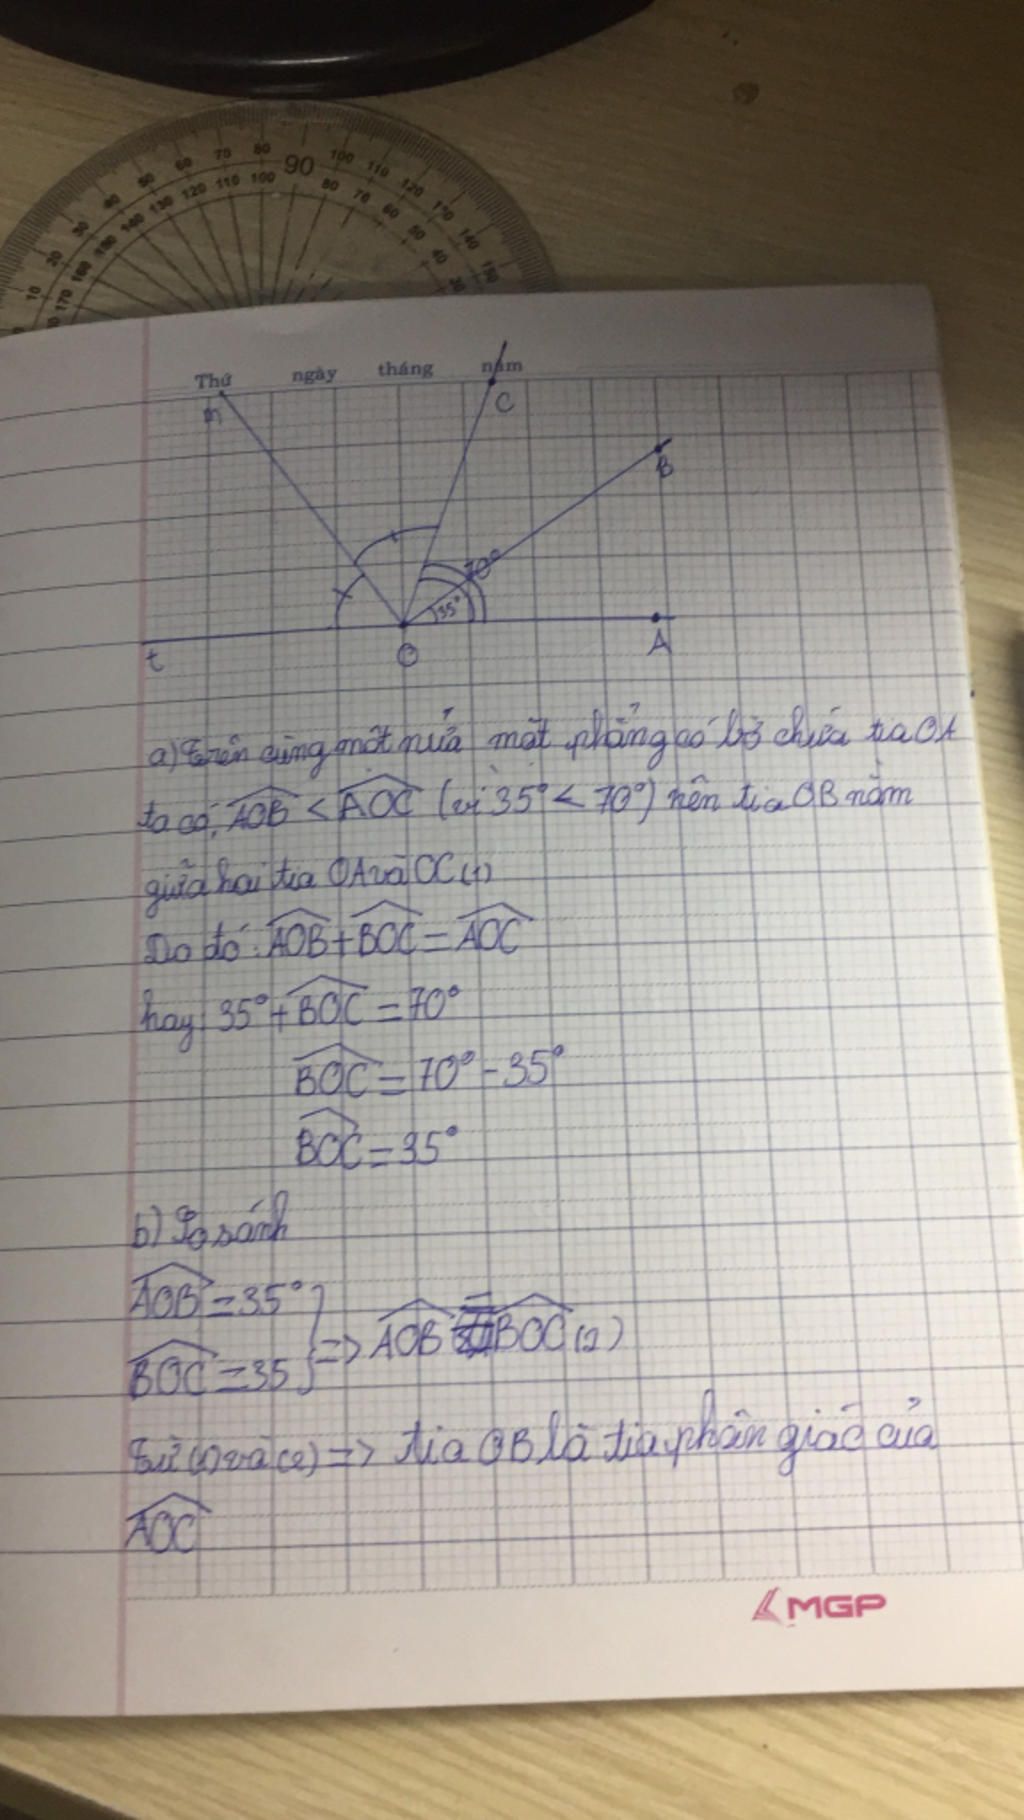 80 90 100
70 110
60 120
50 130
40 140
30 150
20
10
100 80
110 70
120 60
130 50
140 40
150 30
160
170
Thứ ngày tháng năm
m C
B
70°
35°
t O A
a) Trên cùng một nửa mặt phẳng có bờ chứa tia OA
ta có: AOB < AOC (vì 35° < 70°) nên tia OB nằm
giữa hai tia OA và OC (1)
Do đó: AOB + BOC = AOC
hay: 35° + BOC = 70°
BOC = 70° - 35°
BOC = 35°
b) So sánh
AOB = 35°
BOC = 35 } => AOB = BOC (2)
Từ (1) và (2) => tia OB là tia phân giác của
AOC
MGP